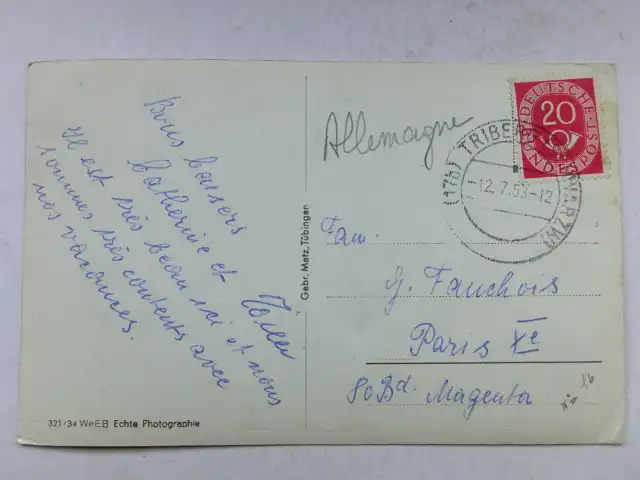 Bons baisers
Catherine et
Il est très beau ici et nous
sommes très contents avec
nos vacances.
321/34 WeEB Echte Photographie
Gebr. Metz, Tübingen
Allemagne
DEUTSCHE BUNDESPOST
20
(17b) TRIBERG (SCHWARZW)
-12.7.53-12
a
Fam.
G. Fauchois
Paris Xe
80 Bd. Magenta